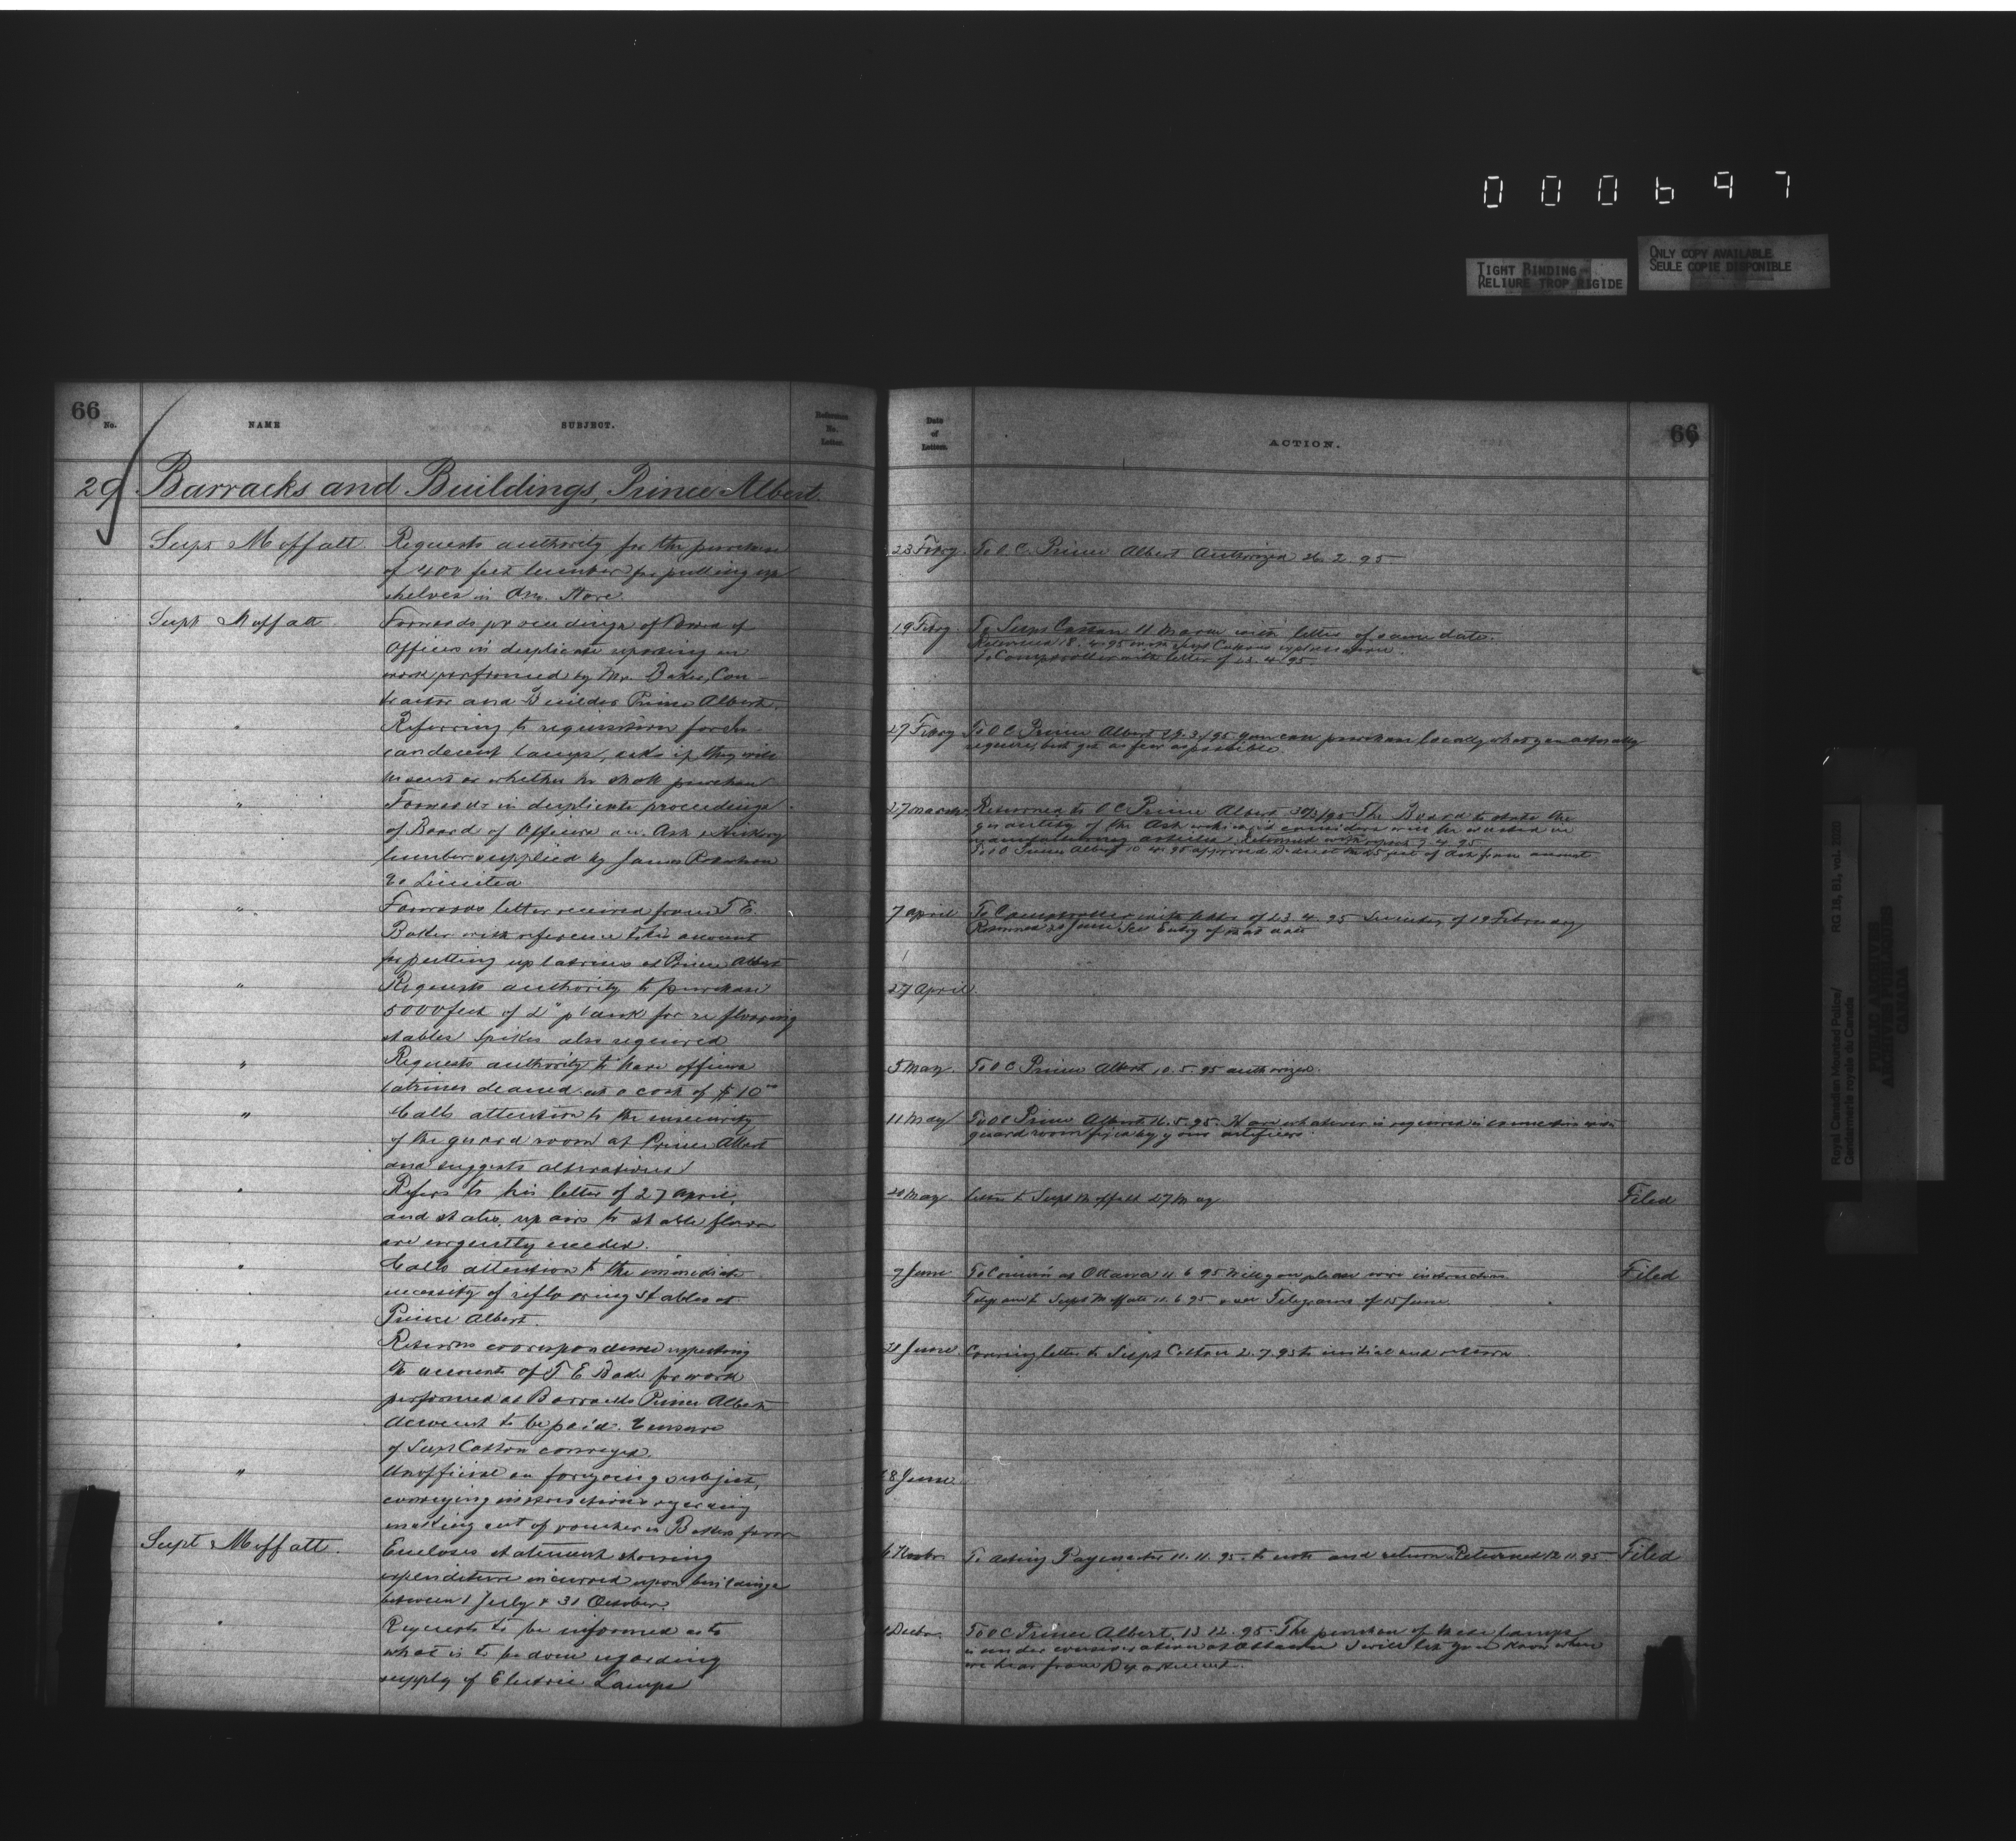 000697
TIGHT BINDING
RELIURE TROP RIGIDE
ONLY COPY AVAILABLE
SEULE COPIE DISPONIBLE
66
No.
NAME
SUBJECT.
Reference No. Letter.
29 Barracks and Buildings, Prince Albert.
Supt Moffatt. Requests authority for the purchase
of 400 feet lumber for putting up
shelves in Qm. Store.
Supt Moffatt Forwards proceedings of Board of
Officers in duplicate reporting on
work performed by Mr. Baker, Con-
tractor and Builder Prince Albert.
" Referring to requisition for In-
candescent lamps, asks if they will
be sent or whether he shall purchase
" Forwards in duplicate proceedings
of Board of Officers on Ash & Hickory
lumber supplied by James Robertson
Co Limited
" Forwards letter received from T E.
Baker with reference to his account
for putting up latrines at Prince Albert
" Requests authority to purchase
5000 feet of 2" plank for re flooring
stables Spikes also required
" Requests authority to have officers
latrines cleaned at a cost of $10
" Calls attention to the insecurity
of the guard room at Prince Albert
and suggests alterations
" Refers to his letter of 27 April,
and states repairs to stable floors
are urgently needed.
" Calls attention to the immediate
necessity of reflooring stables at
Prince Albert.
" Returns correspondence respecting
the accounts of T E Baker for work
performed at Barracks Prince Albert
Account to be paid. Censure
of Supt Cotton conveyed.
" Unofficial on foregoing subject,
conveying instructions regarding
making out of voucher in Bakers favor
Supt Moffatt. Encloses statement showing
expenditure incurred upon buildings
between 1 July & 31 October.
" Requests to be informed as to
what is to be done regarding
supply of Electric Lamps
Date of Letter.
ACTION.
66
23 Febry. To O C. Prince Albert Authorized 26. 2. 95.
19 Febry To Supt Cotton 11 March with letter of same date.
Returned 18. 4. 95 with Supt Cottons explanation.
To Comptroller with letter of 23. 4. 95.
27 Febry To O C Prince Albert 3/95 you can purchase locally what you actually
require, but get as few as possible.
27 March Returned to O C Prince Albert 30/3/95 The Board to state the
quantity of the Ash which it considers will be wasted in
manufacturing articles. Returned with report 7. 4. 95
To O C Prince Albert 10 4. 95 approved. Deduct the 25 feet of Ash from account
7 April To Comptroller with letter of 23. 4. 95 See entry of 19 February
Returned 21 June See Entry of that date
27 April.
5 May. To O C Prince Albert 10. 5. 95 authorized.
11 May To O C Prince Albert 16. 5. 95. Have whatever is required in connection with
guard room fixed by your artificers.
20 May Letter to Supt Moffatt 27 May Filed
7 June To Comm at Ottawa 11 6 95 Will you please wire instructions Filed
Telegram to Supt Moffatt 11. 6 95. & see Telegrams of 15 June.
21 June Covering letter to Supt Cotton 2. 7. 95 to initial and return.
18 June
6 Novbr. To Acting Paymaster 11. 11. 95. to note and return Returned 12 11. 95 Filed
Decbr. To O C Prince Albert, 13 12. 95. The purchase of these lamps
is under consideration at Ottawa I will let you know when
we hear from Department.
Royal Canadian Mounted Police/
Gendarmerie royale du Canada
RG 18, B1, vol. 2020
PUBLIC ARCHIVES
ARCHIVES PUBLIQUES
CANADA